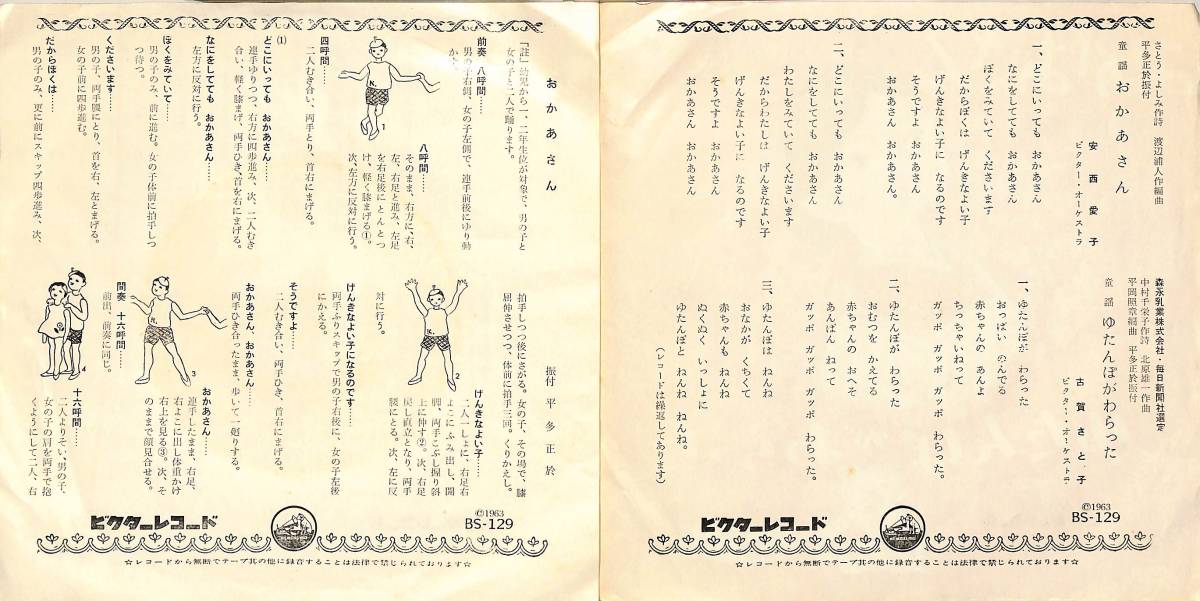 さとう・よしみ作詩 渡辺浦人作編曲
平多正於振付
童謡 おかあさん
安西愛子
ビクター・オーケストラ
一、どこにいっても おかあさん
なにをしてても おかあさん
ぼくをみていて くださいます
だからぼくは げんきなよい子
げんきなよい子に なるのです
そうですよ おかあさん
おかあさん おかあさん。
二、どこにいっても おかあさん
なにをしてても おかあさん
わたしをみていて くださいます
だからわたしは げんきなよい子
げんきなよい子に なるのです
そうですよ おかあさん
おかあさん おかあさん
森永乳業株式会社・毎日新聞社選定
中村千栄子作詩 北原雄一作曲
平岡照章編曲 平多正於振付
童謡 ゆたんぽがわらった
古賀さと子
ビクター・オーケストラ
一、ゆたんぽが わらった
おっぱい のんでる
赤ちゃんの あんよ
ちっちゃいねって
ガッポ ガッポ ガッポ わらった。
二、ゆたんぽが わらった
おむつを かえてる
赤ちゃんの おへそ
あんぱん ねって
ガッポ ガッポ ガッポ わらった。
三、ゆたんぽは ねんね
おなかが くちくて
赤ちゃんも ねんね
ぬくぬく いっしょに
ゆたんぽと ねんね ねんね。
(レコードは繰返してあります)
ビクターレコード
©1963
BS-129
☆レコードから無断でテープ其の他に録音することは法律で禁じられております☆
おかあさん
振付 平多正於
「註」幼児から一、二年生位が対象で、男の子と
女の子と二人で踊ります。
前奏 八呼間……
男の子右側、女の子左側で、連手前後にゆり動
かす。
八呼間……
そのまま、右方に、右、
左、右足と進み、左足
を右足後にとんとつ
け、軽く膝まげる①。
次、左方に反対に行う。
1
四呼間……
二人むき合い、両手とり、首右にまげる。
(1)
どこにいっても おかあさん……
連手ゆりつつ、右方に四歩進み、次、二人むき
合い、軽く膝まげ、両手ひき、首を右にまげる。
なにをしてても おかあさん……
左方に反対に行う。
ほくをみていて……
男の子のみ、前に進む。女の子体前に拍手しつ
つ待つ。
くださいます……
男の子、両手腰にとり、首を右、左とまげる。
女の子前に四歩進む。
だからほくは……
男の子のみ、更に前にスキップ四歩進み、次、
拍手しつつ後にさがる。女の子、その場で、膝
屈伸させつつ、体前に拍手三回。くりかえし。
げんきなよい子……
二人一しょに、右足右
よこにふみ出し、開
脚、両手こぶし握り斜
上に伸す②。次、右足
戻し直立となり、両手
腰にとる。次、左に反
対に行う。
2
げんきなよい子になるのです……
両手ふりスキップで男の子右後に、女の子左後
にかえる。
そうですよ……
二人むき合い、両手ひき、首右にまげる。
おかあさん、おかあさん……
両手ひき合ったまま、歩いて一廻りする。
おかあさん……
連手したまま、右足、
右よこに出し体重かけ
右上を見る③。次、そ
のままで顔見合せる。
3
間奏 十六呼間……
前出、前奏に同じ。
十六呼間……
二人よりそい、男の子、
女の子の肩を両手で抱
くようにして二人、右
4
ビクターレコード
©1963
BS-129
☆レコードから無断でテープ其の他に録音することは法律で禁じられております☆